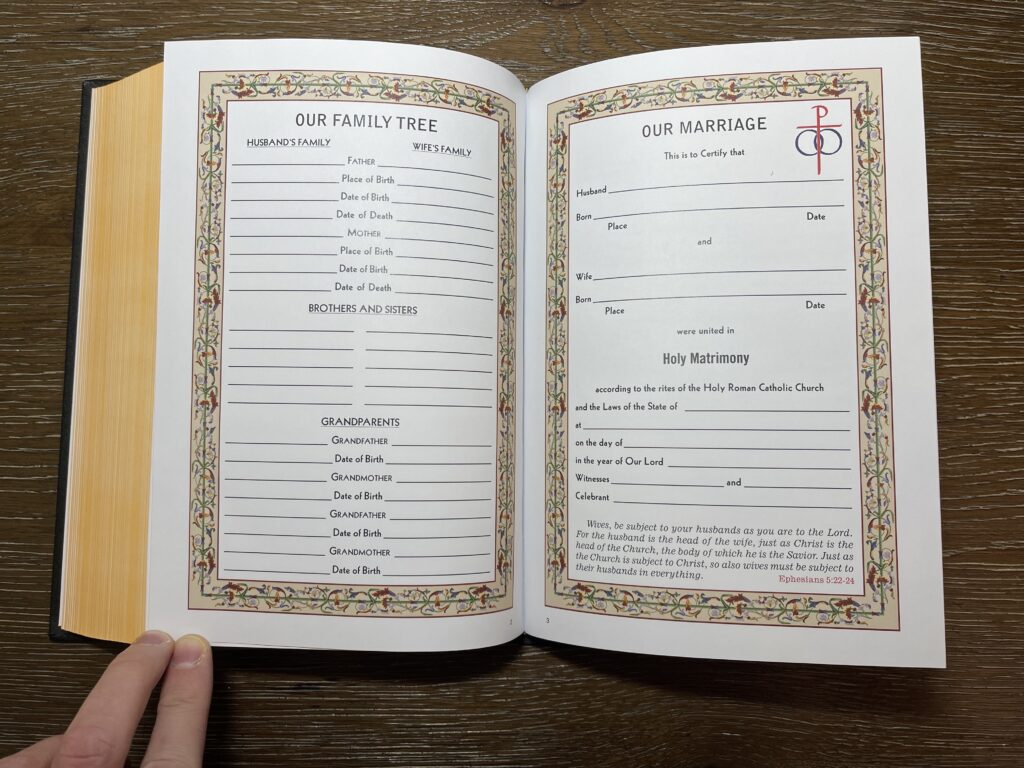 OUR FAMILY TREE
HUSBAND'S FAMILY WIFE'S FAMILY
FATHER
Place of Birth
Date of Birth
Date of Death
MOTHER
Place of Birth
Date of Birth
Date of Death
BROTHERS AND SISTERS
GRANDPARENTS
GRANDFATHER
Date of Birth
GRANDMOTHER
Date of Birth
GRANDFATHER
Date of Birth
GRANDMOTHER
Date of Birth
2
OUR MARRIAGE
This is to Certify that
Husband
Born
Place Date
and
Wife
Born
Place Date
were united in
Holy Matrimony
according to the rites of the Holy Roman Catholic Church
and the Laws of the State of
at
on the day of
in the year of Our Lord
Witnesses and
Celebrant
Wives, be subject to your husbands as you are to the Lord.
For the husband is the head of the wife, just as Christ is the
head of the Church, the body of which he is the Savior. Just as
the Church is subject to Christ, so also wives must be subject to
their husbands in everything.
Ephesians 5:22-24
3